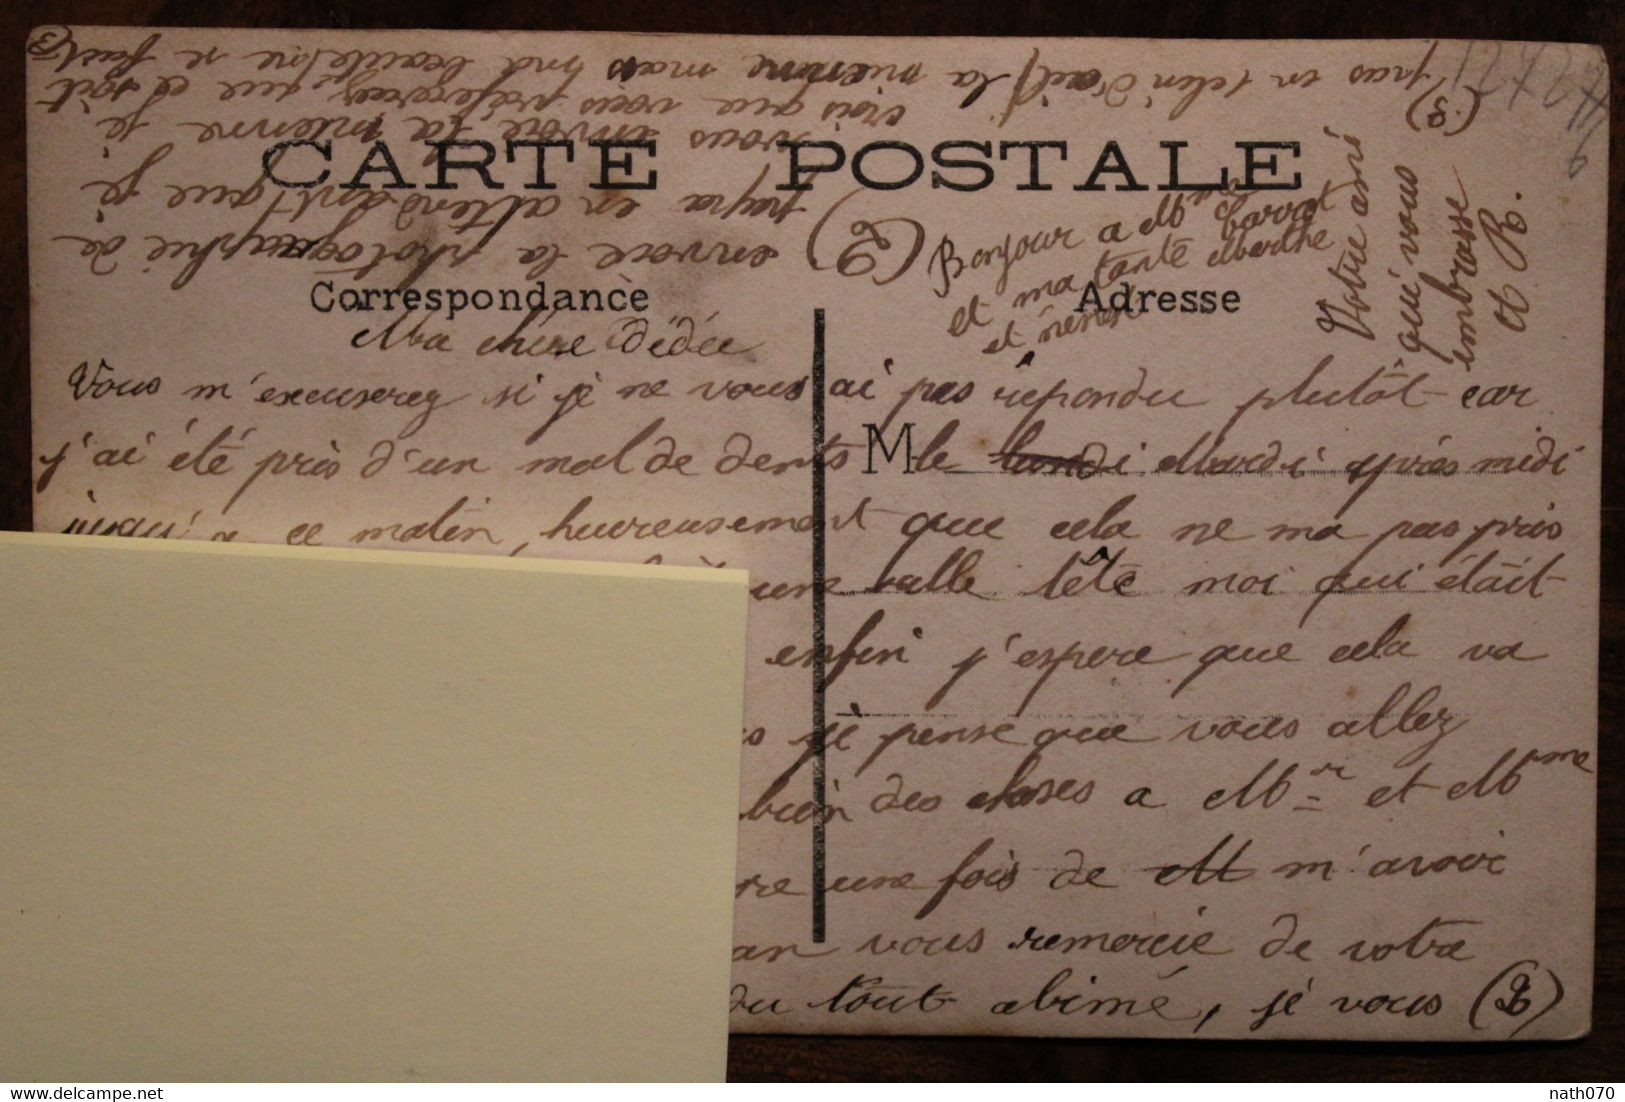 CARTE POSTALE
Correspondance
Adresse
M
Ma chère Dédée
Vous m'excuserez si je ne vous ai pas répondu plutôt car
j'ai été pris d'un mal de dents le lundi Mardi après midi
jusqu'à ce matin, heureusement que cela ne ma pas pris
une salle tête moi qui était
enfin j'espere que cela va
je pense que vous allez
bien des choses a Mr et Mme
re une fois de M m'avoir
an vous remercie de votre
du tout abimé, je vous (2)
(2) envoie la photographie de
papa en attendant que je
vous envoie la mienne je
crois que vous préférerez que ce soit
la mienne mais ma
(3)
pas en
(3)
Bonjour a Mme Carvat
et ma tante Marthe
et
Votre ami
qui vous
embrasse
R.